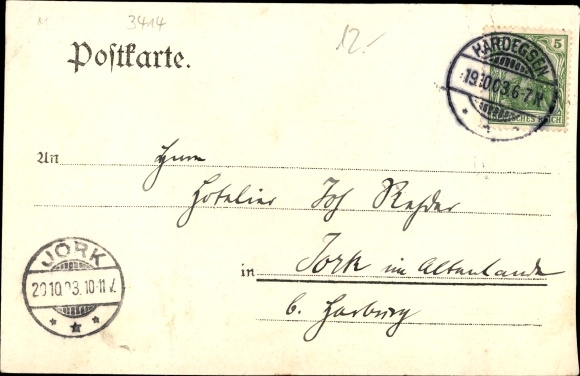 3414
12.-
Postkarte.
5
HARDEGSEN
19.10.03.6-7N
DEUTSCHES REICH
An Herrn
Hotelier Joh Rehder
JORK
20.10.03.10-11V.
in Jork im Altenlande
b. Harburg